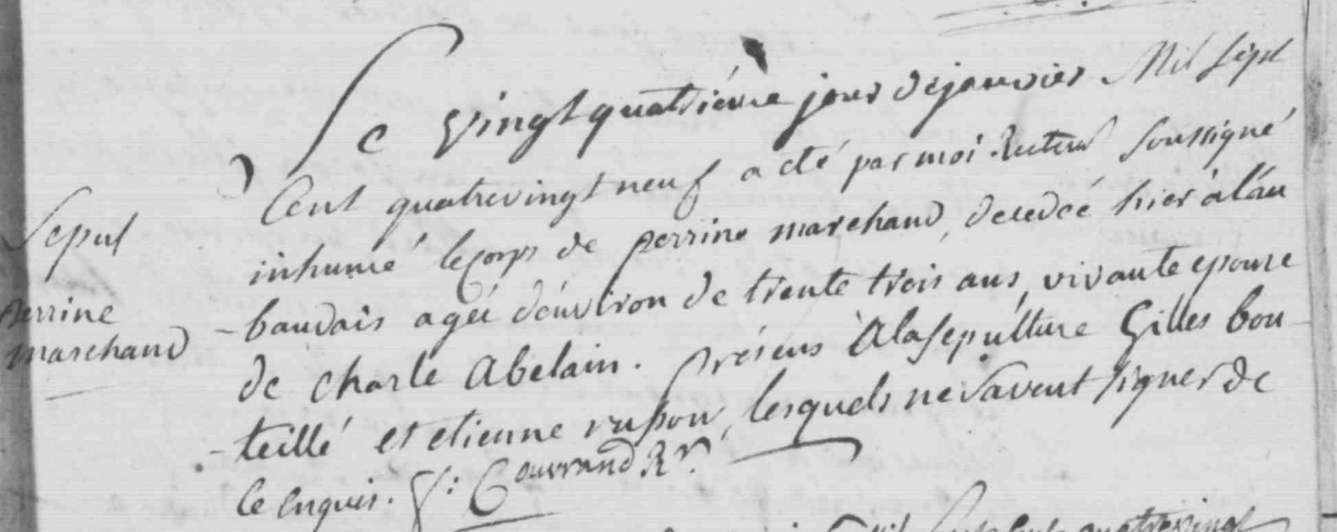 Le vingt quatriéme jour de janvier Mil sept
Cent quatrevingt neuf a eté par moi Recteur soussigné
Sepul
perrine
marchand
inhumé le corps de perrine marchand, decedée hier à la
baudais agée d'environ de trente trois ans, vivante epouse
de charle Abelain. présens à la sepulture Gilles bou
-teillé et etienne, lesquels ne savent signer de
ce enquis. Couvrand Rr.
quatrevingt